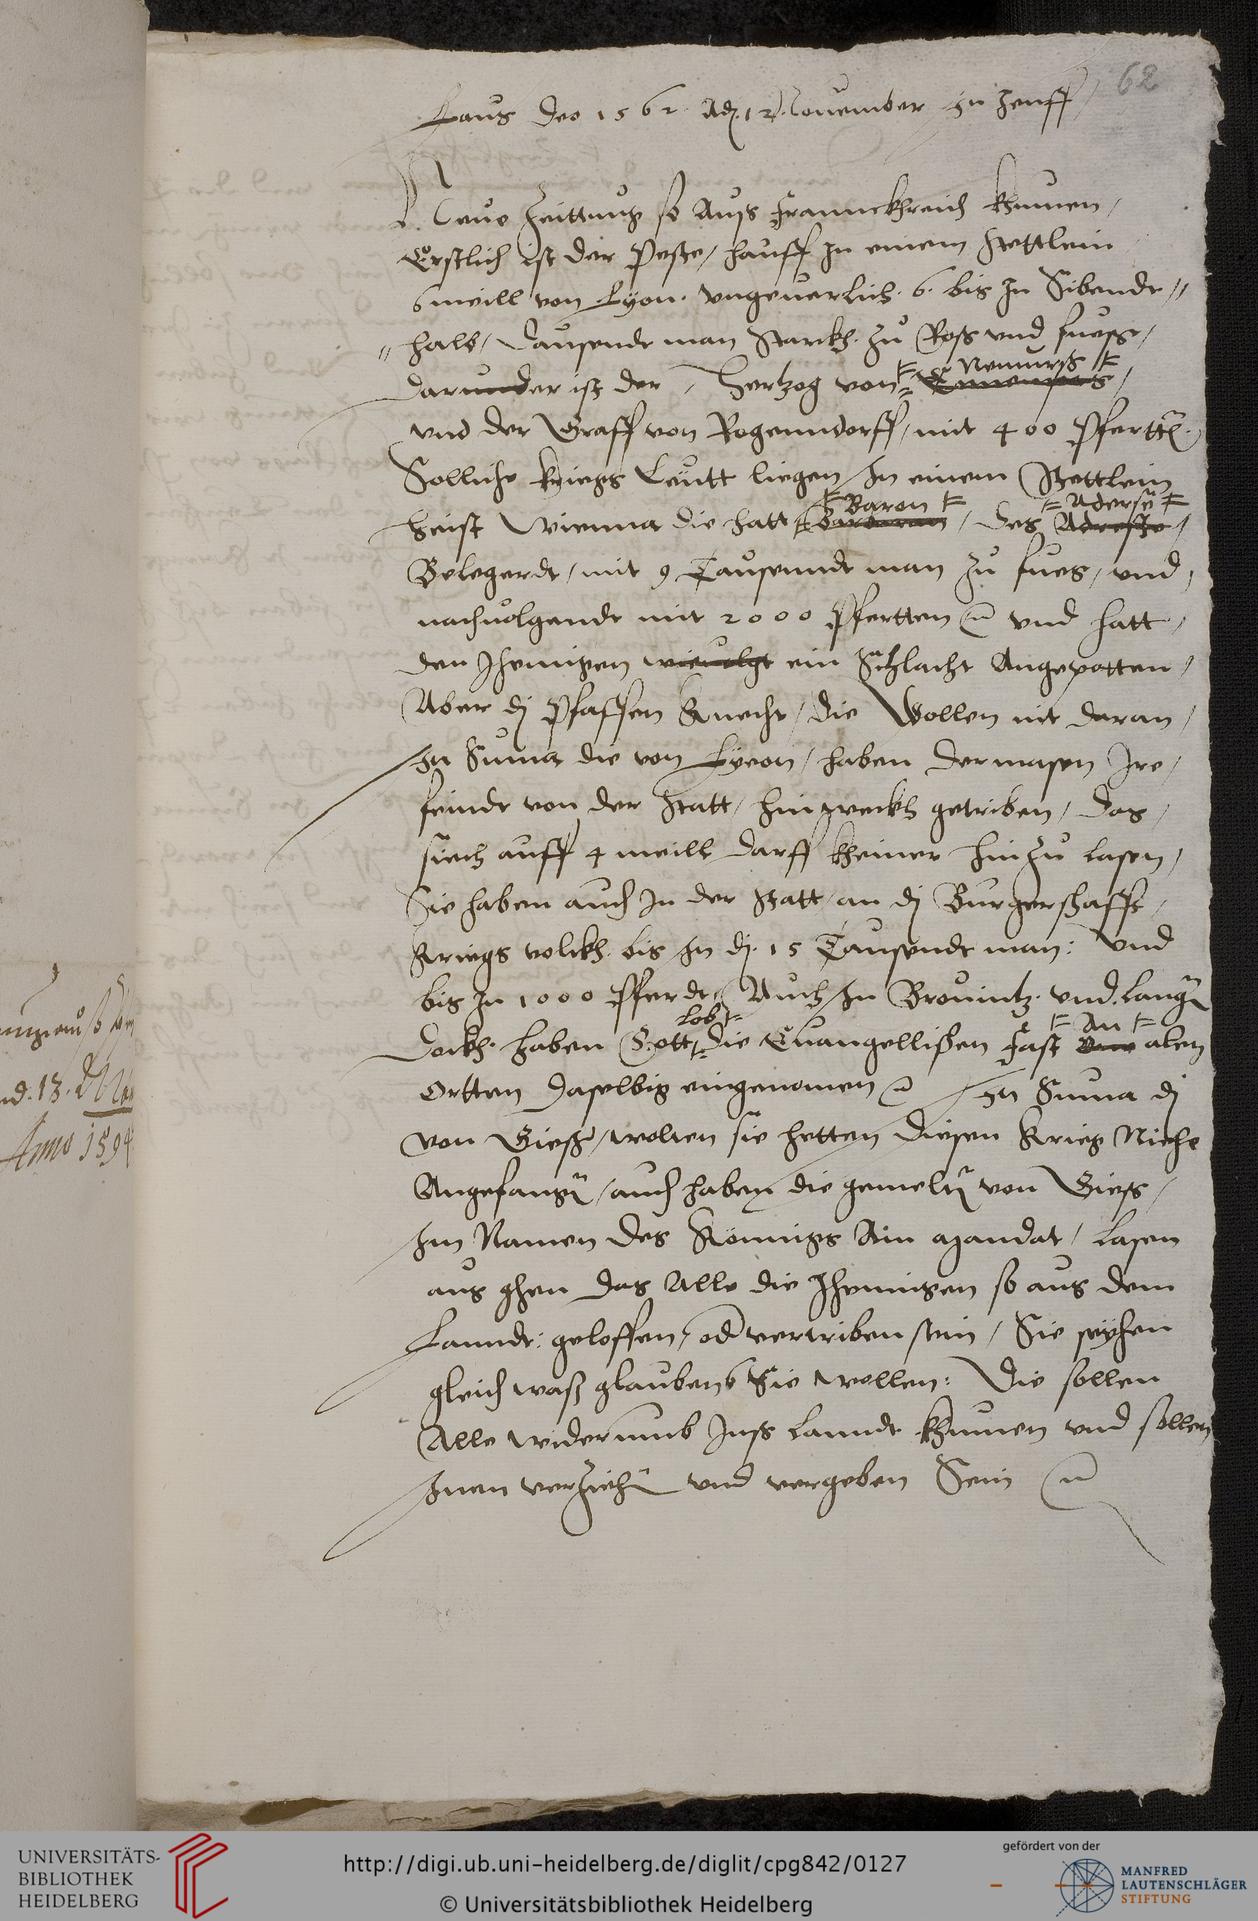 62
Laus deo 1562 Adj. 12. Nouember zu Jenff
Neue Zeittung so Auß Frannckhreich khumen,
Erstlich ist der Peste, hauff In einem Stettlein
6 meill von Lÿon. vngeuerlich. 6. bis In Sibende„
„halb, Dausendt man Starckh. Zu Roß vnd fuess,
Darunder ist der, Hertzog von Nemurß,
vnd der Graff von Rogenndorff, mit 400 Pfertt.
Solliche kriegs Leütt liegen In einem Stettlein
heist Vienna die hatt Baron, des Aderse,
Belegerdt, mit 9 Tausenndt man zu fues, vnd,
nachuolgendt mit 2000 Pfertten vnd hatt,
den Jhenigen wieuolgt ein Schlacht Angepotten,
Aber dj Pfaffen Knecht, die Wollen nit daran,
In Suma die von Lÿeon, haben dermasen Ire,
feindt von der Statt, hinweckh getriben, das,
siech auff 4 meill darff kheiner hin zu lasen,
Sie haben auch In der Statt, an dj Burgerschafft,
Kriegs volckh. bis In dj. 15 Tausendt man: Vnd
bis In 1000 Pferdt, Auch In Brouintz. vnd. Lang
dockh. haben Gott Lob die Euangellißen Fast An alen
Ortten daselbig eingenomen In Suma dj
von Giess, wolten sie hetten diesen Krieg Nicht
Angefang, auch haben die gemelt von Giess,
Im Namen des Könnigs Ain Mandat, Lasen
aus ghen das Alle die Jhenigen so aus dem
Lanndt: geloffen, od vertriben sein, Sie seÿhen
gleich waß glaubens Sie wollen: Die sollen
Alle widerumb Inß Lanndt khumen vnd sollen
Inen verzieh vnd vergeben Sein
nd. 13.
Anno 1594
UNIVERSITÄTS-
BIBLIOTHEK
HEIDELBERG
http://digi.ub.uni-heidelberg.de/diglit/cpg842/0127
© Universitätsbibliothek Heidelberg
gefördert von der
MANFRED
LAUTENSCHLÄGER
STIFTUNG